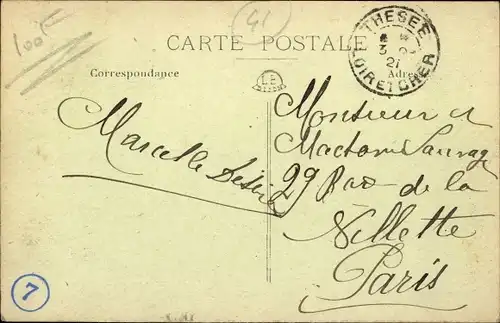 100F
41
CARTE POSTALE
THESEE
* *
3
21
LOIR ET CHER
Correspondance
LE
Adre
Marcelle Désiré
Monsieur et
Madame Sauvag
29 Rue de la
Villette
Paris
7